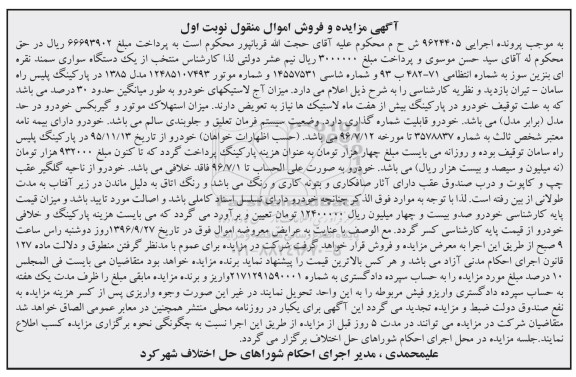 آگهی مزایده و فروش اموال منقول نوبت اول
به موجب پرونده اجرایی ۹۶۲۴۴۰۵ ش ح م محکوم علیه آقای حجت الله قربانپور محکوم است به پرداخت مبلغ ۶۶۶۹۳۹۰۲ ریال در حق
محکوم له آقای سید حسن موسوی و پرداخت مبلغ ۳۰۰۰۰۰۰ ریال نیم عشر دولتی لذا کارشناس منتخب از یک دستگاه سواری سمند نقره
ای بنزین سوز به شماره انتظامی ۷۱-۴۸۲ ب ۹۳ و شماره شاسی ۱۴۵۵۷۵۳۱ و شماره موتور ۱۲۴۸۵۱۰۷۴۹۳ مدل ۱۳۸۵ در پارکینگ پلیس راه
سامان - تیران بازدید و نظریه کارشناسی را به شرح ذیل اعلام می دارد. میزان آج لاستیکهای خودرو به طور میانگین حدود ۳۰ درصد می باشد
که به علت توقیف خودرو در پارکینگ بیش از هفت ماه لاستیک ها نیاز به تعویض دارند. میزان استهلاک موتور و گیربکس خودرو در حد
مدل (برابر مدل) می باشد. خودرو قابلیت شماره گذاری دارد وضعیت سیستم فرمان تعلیق و جلوبندی سالم می باشد. خودرو دارای بیمه نامه
معتبر شخص ثالث به شماره ۳۵۷۸۸۳۷ تا مورخه ۹۶/۷/۱۲ می باشد. (حسب اظهارات خواهان) خودرو از تاریخ ۹۵/۱۱/۱۳ در پارکینگ پلیس
راه سامان توقیف بوده و روزانه می بایست مبلغ چهار هزار تومان به عنوان هزینه پارکینگ پرداخت گردد که تا کنون مبلغ ۹۳۲۰۰۰ هزار تومان
(نه میلیون و سیصد و بیست هزار ریال) می باشد. خودرو به صورت علی الحساب تا ۹۶/۷/۱ فاقد خلافی می باشد. خودرو از ناحیه گلگیر عقب
چپ و کاپوت و درب صندوق عقب دارای آثار صافکاری و بتونه کاری و رنگ می باشد و رنگ اتاق به دلیل ماندن در زیر آفتاب به مدت
طولانی از بین رفته است. لذا با توجه به موارد فوق الذکر چنانچه خودرو دارای تسلسل اسناد کاملی باشد و اصالت مورد تایید باشد و میزان قیمت
پایه کارشناسی خودرو صدو بیست و چهار میلیون ریال ۱۲۴۰۰۰۰۰ تومان تعیین و برآورد می گردد که می بایست هزینه پارکینگ و خلافی
خودرو از قیمت پایه کارشناسی کسر گردد. مع الوصف با عنایت به عرایض معروضه اموال فوق در تاریخ ۱۳۹۶/۹/۲۷روز دوشنبه راس ساعت
۹ صبح از طریق این اجرا به معرض مزایده و فروش قرار خواهد گرفت شرکت در مزایده برای عموم با مدنظر گرفتن منطوق و دلالت ماده ۱۲۷
قانون اجرای احکام مدنی آزاد می باشد و هر کس بالاترین قیمت را پیشنهاد نماید برنده مزایده خواهد بود متقاضیان می بایست فی المجلس
۱۰ درصد مبلغ مورد مزایده را به حساب سپرده دادگستری به شماره ۲۱۷۱۲۹۱۵۹۰۰۰۱واریز و برنده مزایده مابقی مبلغ را ظرف مدت یک هفته
به حساب سپرده دادگستری واریزو فیش مربوطه را به این واحد تحویل نمایند در غیر این صورت وجوه واریزی پس از کسر هزینه مزایده به
نفع صندوق دولت ضبط و مزایده تجدید می گردد این آگهی برای یکبار در روزنامه محلی منتشر همچنین در معابر عمومی الصاق خواهد شد
متقاضیان شرکت در مزایده می توانند در مدت ۵ روز قبل از مزایده از طریق این اجرا نسبت به چگونگی نحوه برگزاری مزایده کسب اطلاع
نمایند.جلسه مزایده در محل اجرای احکام شوراهای حل اختلاف برگزار می گردد.
علیمحمدی ، مدیر اجرای احکام شوراهای حل اختلاف شهرکرد